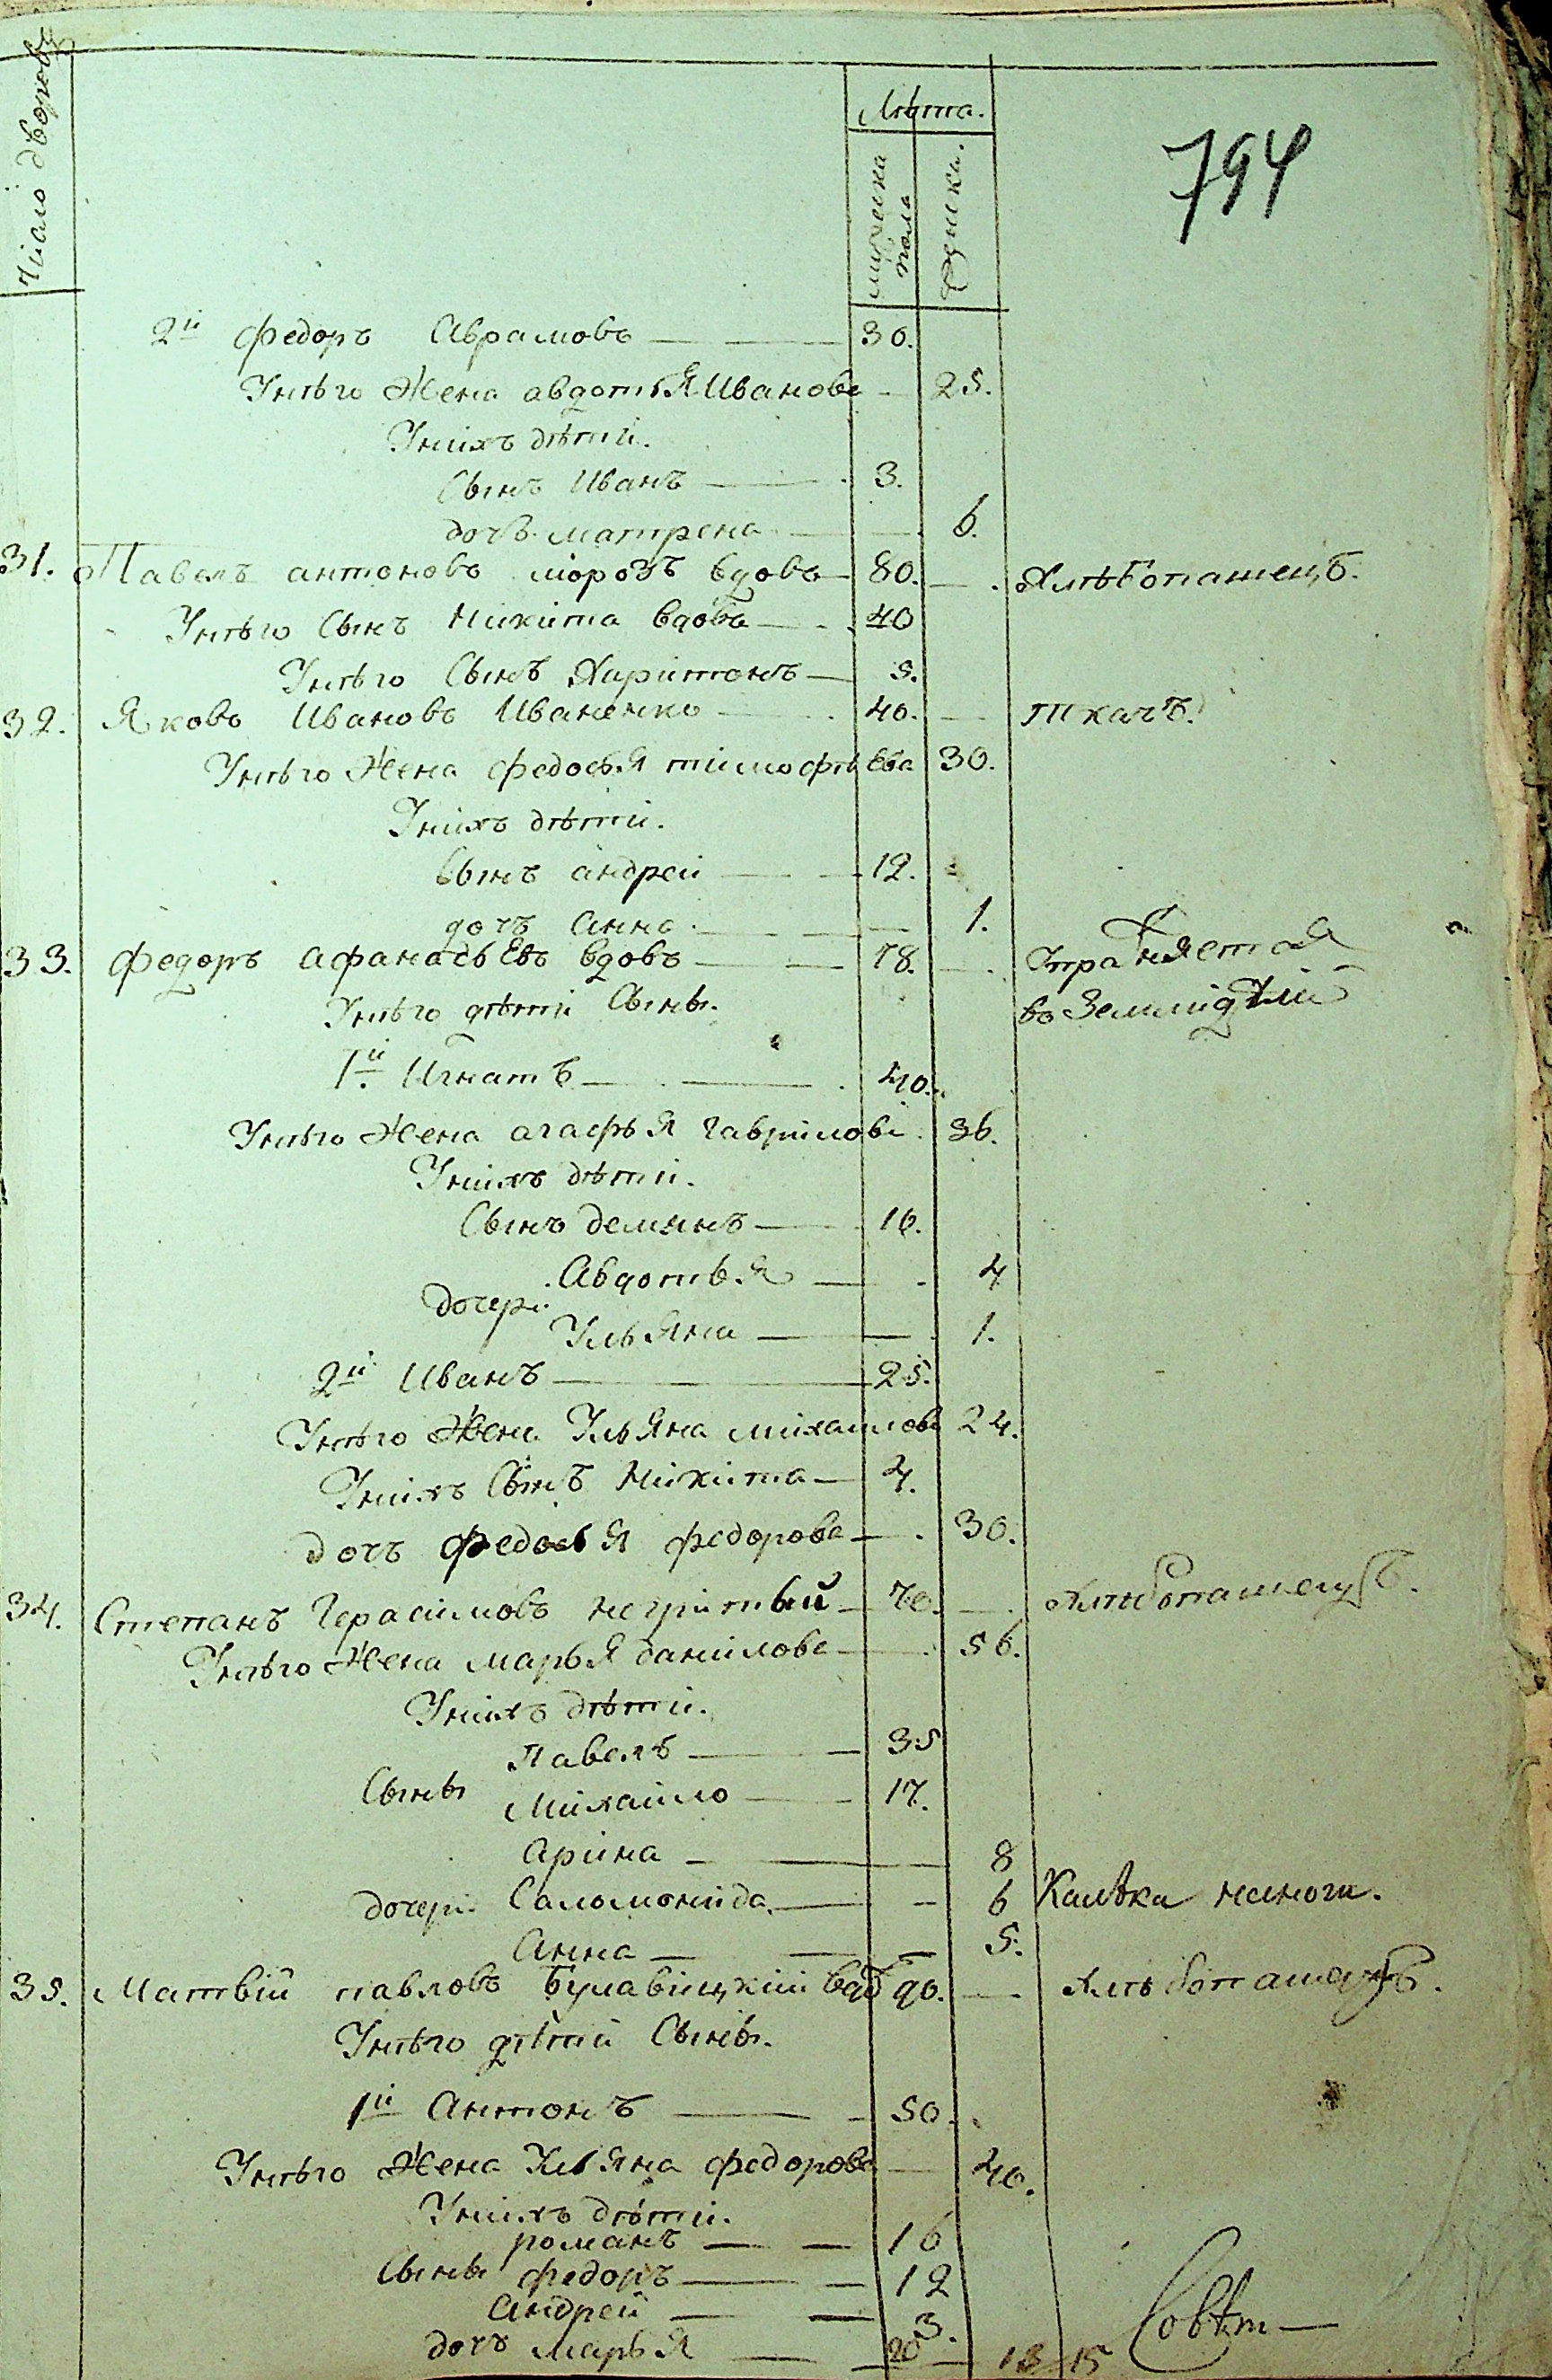 Число дворовъ
Лѣта.
мужеска пола
женска.
794
2й федоръ Аврамовъ 30.
Унѣго Жена авдотья Иванова 25.
Унихъ дѣти.
Сынъ Иванъ 3.
дочъ матрена 6.
31. Павелъ антоновъ морозъ вдовъ 80. Хлѣбопашецъ.
Унѣго Сынъ Никита вдовъ 40
Унѣго Сынъ Харитонъ 5.
32. Яковъ Ивановъ Иваненко 40. Ткачъ.
Унѣго Жена федосья тимофѣева 30.
Унихъ дѣти.
Сынъ андрей 12.
дочъ Анна 1.
33. федоръ афанасьевъ вдовъ 78. Упражняется
въ Земледѣліи
Унѣго дѣти Сыны.
1й Игнатъ 40.
Унѣго Жена агафья гаврилова 36.
Унихъ дѣти.
Сынъ демянъ 16.
Авдотья 4
дочери.
Ульяна 1.
2й Иванъ 25.
Унѣго Жена Ульяна михаилова 24.
Унихъ Сынъ Никита 4.
дочъ федосья федорова 30.
34. Степанъ Герасимовъ негритый 70. Хлѣбопашецъ.
Унѣго Жена марья данилова 56.
Унихъ дѣти.
Павелъ 35
Сыны
Михайло 17.
Арина 8
дочери Саломонида 6 Калѣка наноги.
Анна 5.
35. Матвій павловъ Булавіцкій вдо 90. Хлѣбопашецъ.
Унѣго дѣти Сыны.
1й Антонъ 50.
Унѣго Жена Ульяна федорова 40.
Унихъ дѣти.
романъ 16
Сыны федоръ 12
Андрей 3.
дочъ марья 20 13 15
Совѣт